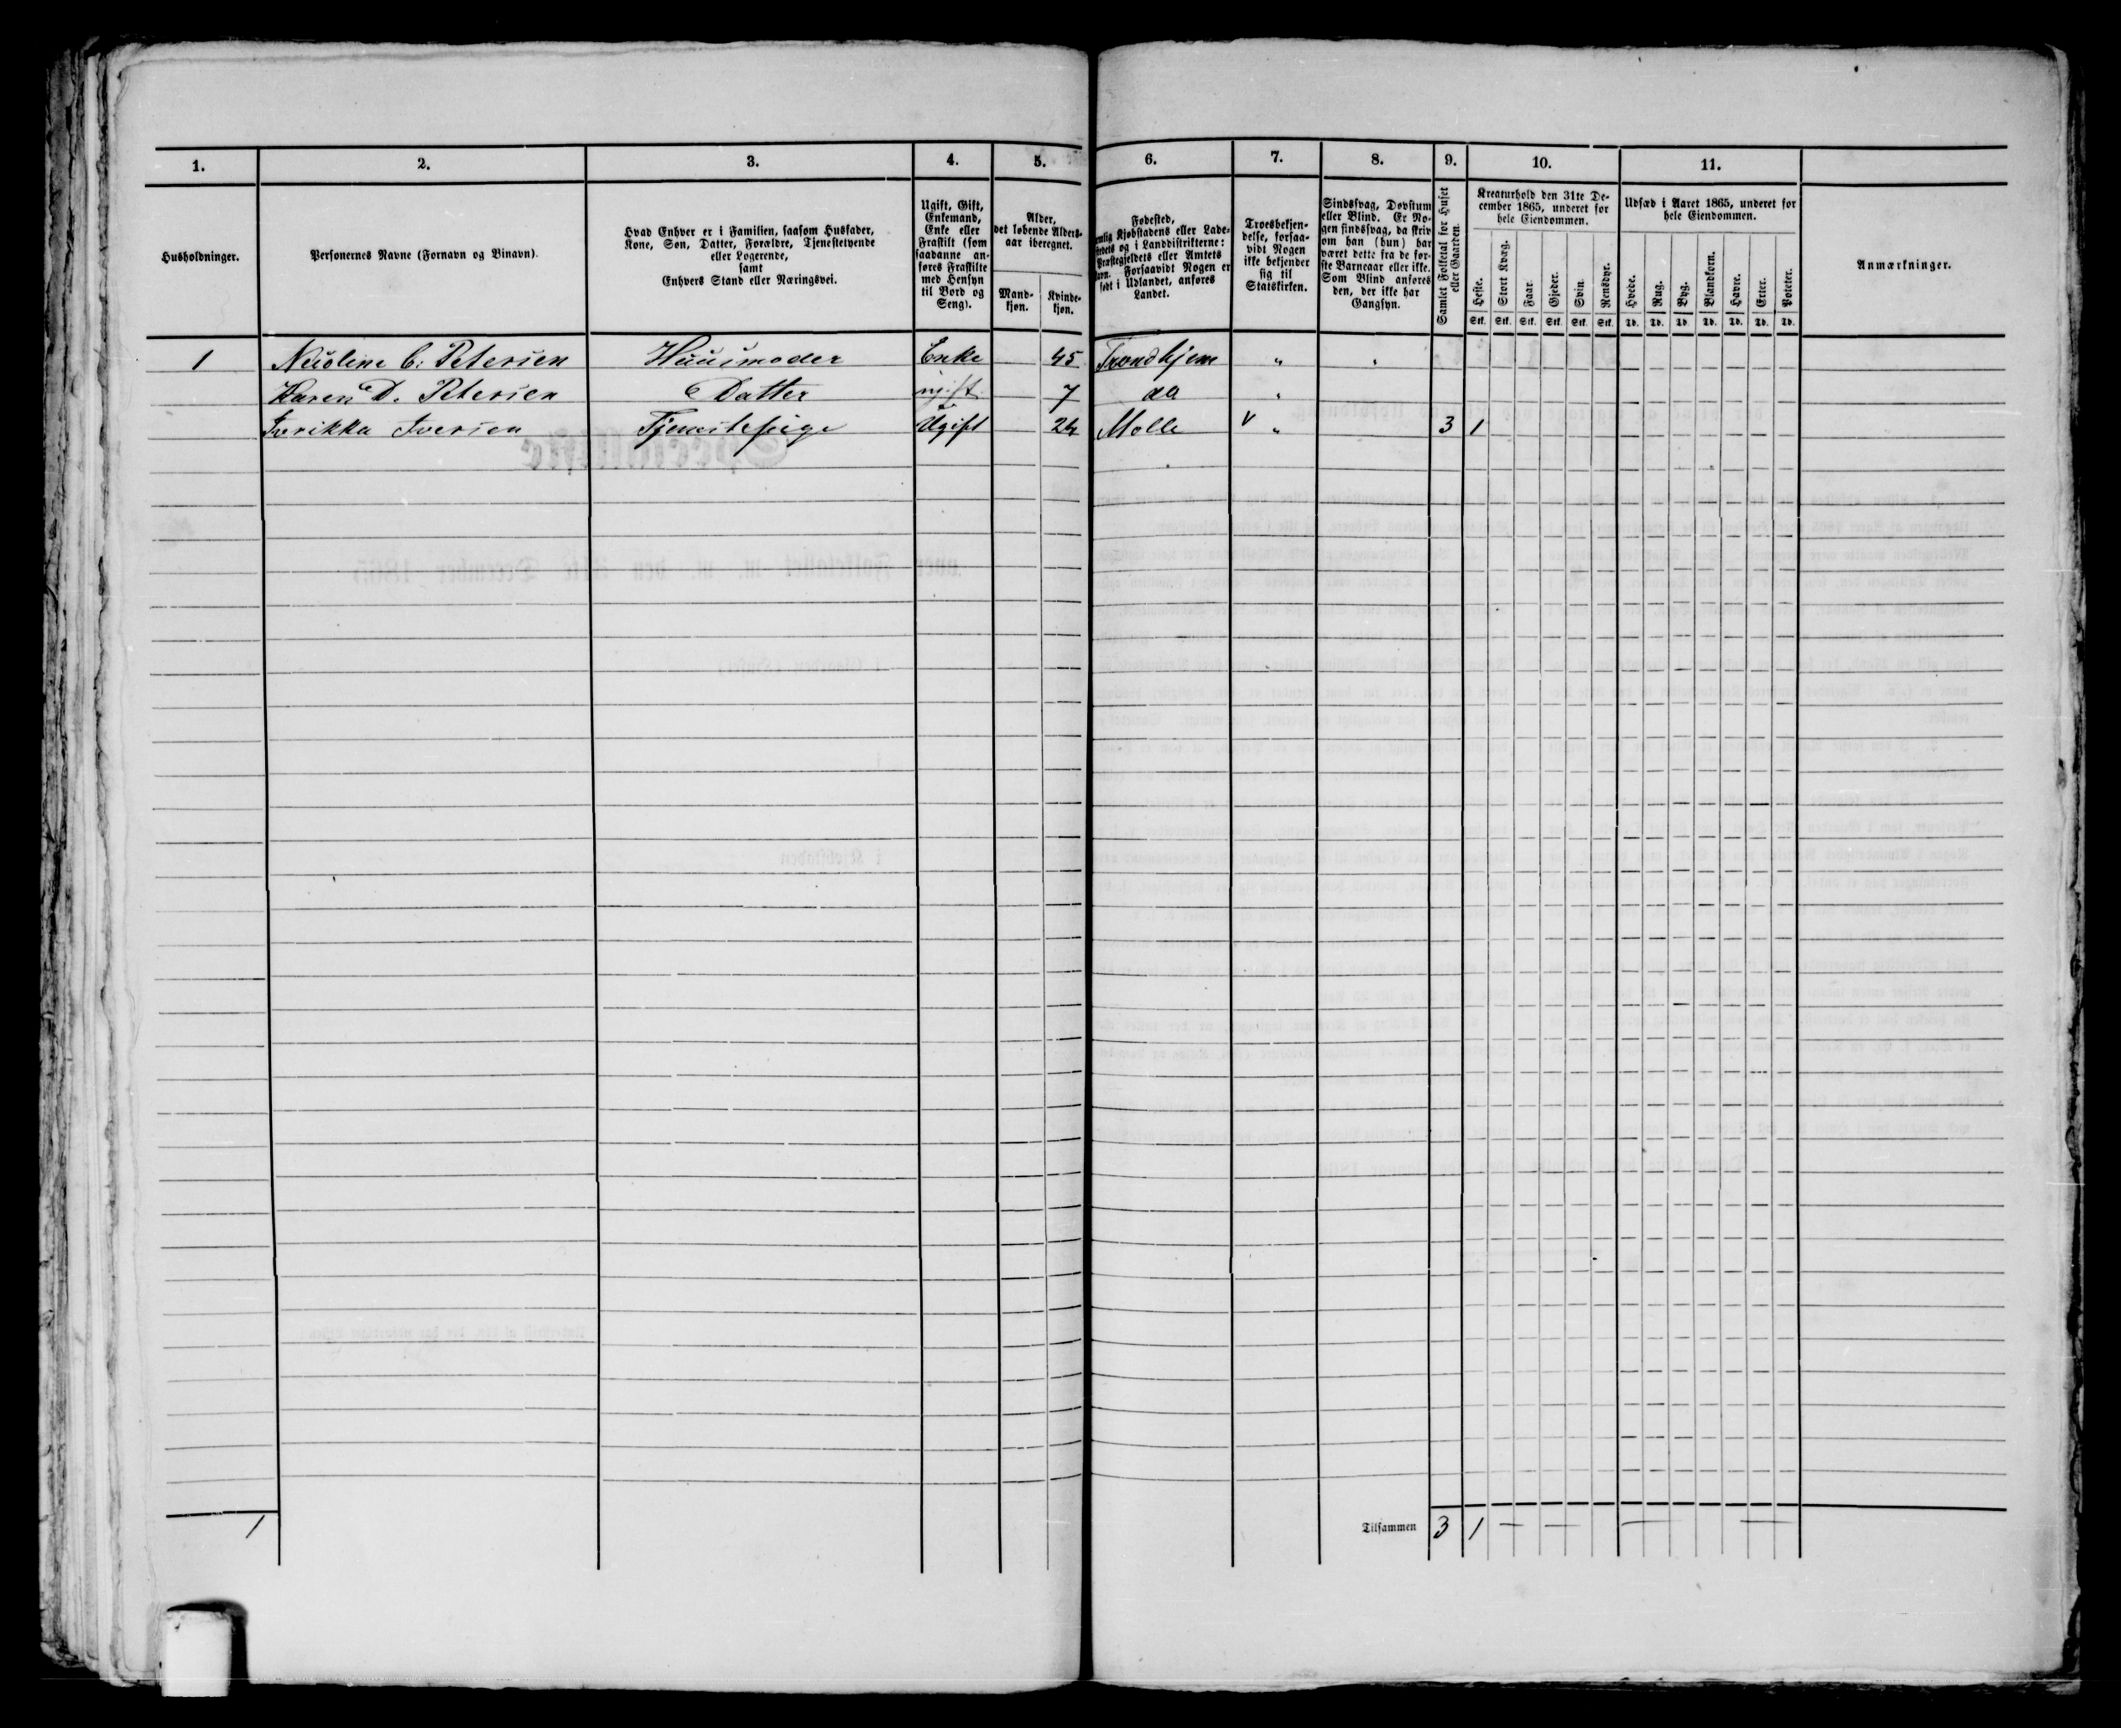 1. 2. 3. 4. 5. 6. 7. 8. 9. 10. 11.
Husholdninger.
Personernes Navne (Fornavn og Binavn).
Hvad Enhver er i Familien, saasom Husfader,
Kone, Søn, Datter, Forældre, Tjenestetyende
eller Logerende,
samt
Enhvers Stand eller Næringsvei.
Ugift, Gift,
Enkemand,
Enke eller
Fraskilt (som
saadanne an-
føres Fraskilte
med Hensyn
til Bord og
Seng).
Alder,
det løbende Alders-
aar iberegnet.
Mand-
kjøn.
Kvinde-
kjøn.
Fødested,
Kjøbstadens eller Lade-
stedets og i Landdistrikterne:
Præstegjeldets eller Amtets
Navn. Forsaavidt Nogen er
født i Udlandet, anføres
Landet.
Troesbekjen-
delse, forsaa-
vidt Nogen
ikke bekjender
sig til
Statskirken.
Sindssvag, Døvstum
eller Blind. Er No-
gen sindssvag, da skriv
om han (hun) har
været dette fra de før-
ste Barneaar eller ikke.
Som Blind anføres
den, der ikke har
Gangsyn.
Samlet Folketal for Huset
eller Gaarden.
Kreaturhold den 31te De-
cember 1865, underet for
hele Eiendommen.
Heste. Stort Kvæg. Faar. Gjeder. Svin. Rensdyr.
Stk. Stk. Stk. Stk. Stk. Stk.
Udsæd i Aaret 1865, underet for
hele Eiendommen.
Hvede. Rug. Byg. Blandkorn. Havre. Erter. Poteter.
Td. Td. Td. Td. Td. Td. Td.
Anmærkninger.
1 C. Petersen Huusmoder Enke 45 Trondhjem " "
Karen D. Petersen Datter ugift 7 do "
Iverikka Iversen Tjenestepige Ugift 24 Molde V " 3 1
1 Tilsammen 3 1 — — — —